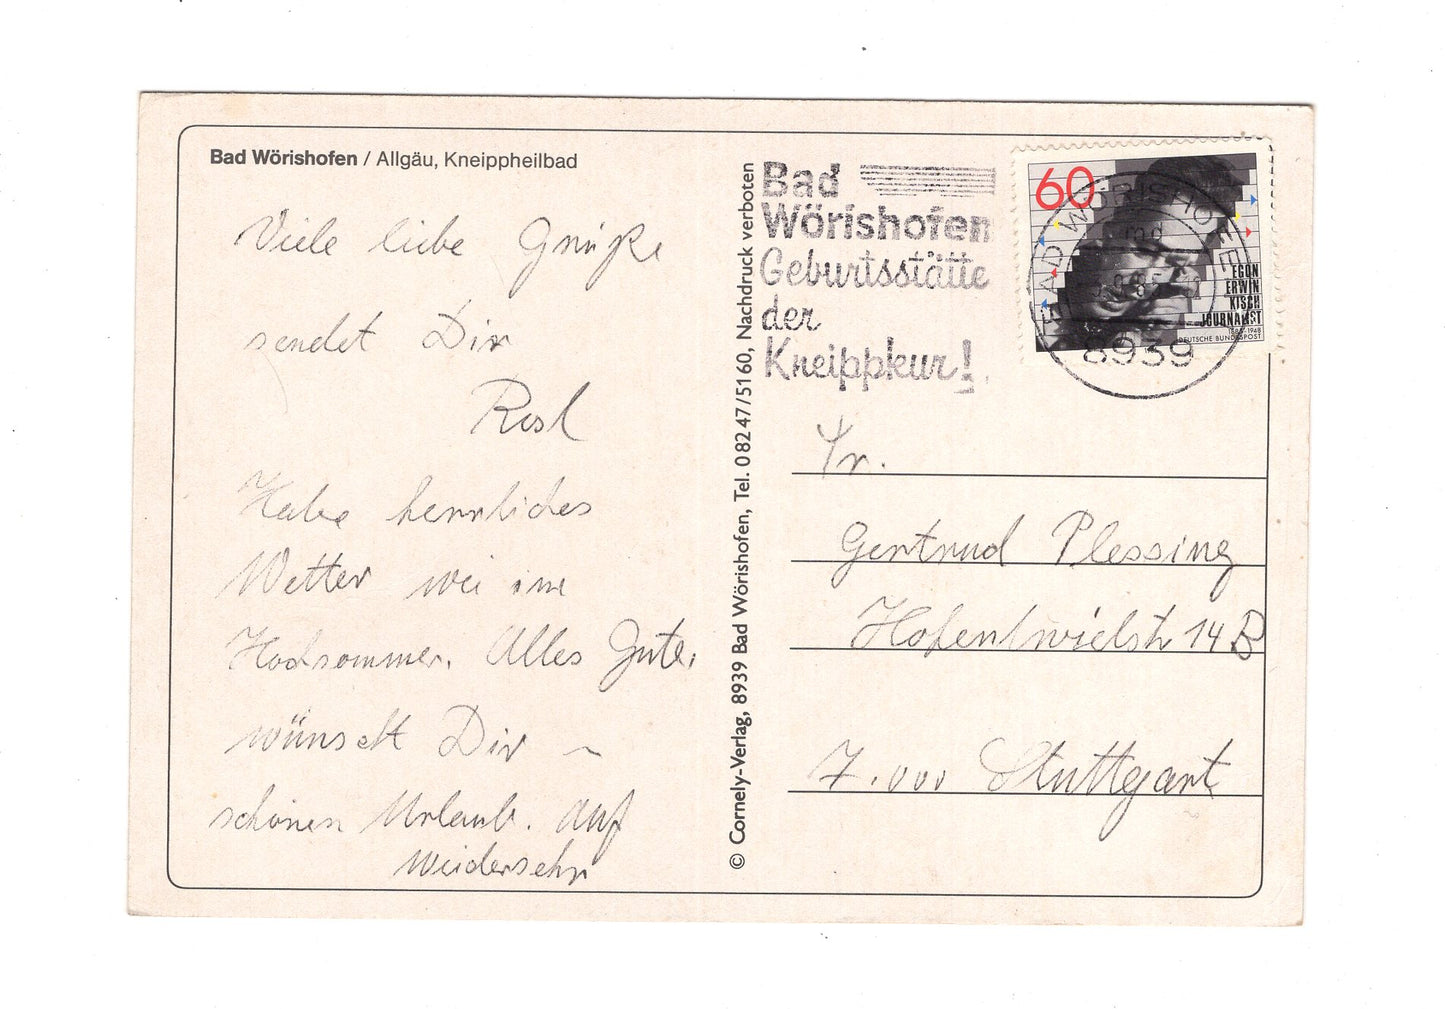 Bad Wörishofen / Allgäu, Kneippheilbad
Viele liebe Grüße
sendet Dir
Rosl
Habe herrliches
Wetter wei im
Hochsommer. Alles Gute,
wünscht Dir
schönen Urlaub. Auf
Weidersehn
© Cornely-Verlag, 8939 Bad Wörishofen, Tel. 0 82 47 / 51 60, Nachdruck verboten
Bad
Wörishofen
Geburtsstätte
der
Kneippkur!
60
EGON
ERWIN
KISCH
JOURNALIST
DEUTSCHE BUNDESPOST
BAD WÖRISHOFEN
8939
Fr.
Gertrud Plessing
Hohentwielstr 14 B
7.000 Stuttgart